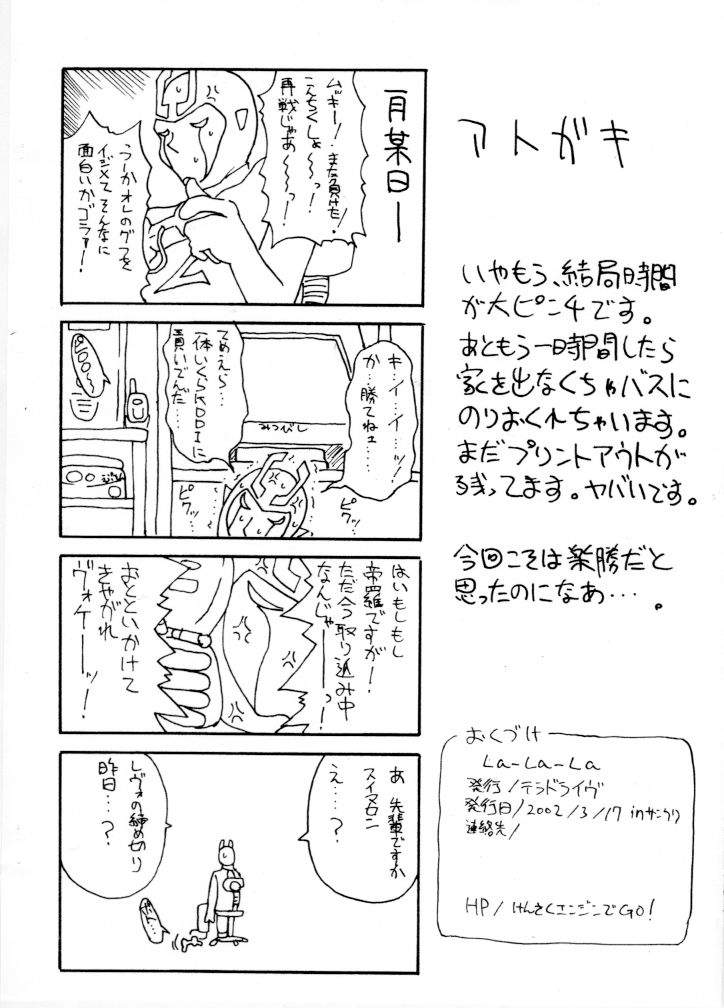 アトガキ
いやもう、結局時間
が大ピンチです。
あともう一時間したら
家を出なくちゃバスに
のりおくれちゃいます。
まだプリントアウトが
残ってます。ヤバいです。
今回こそは楽勝だと
思ったのになあ・・・。
月某日ー
ムッキー!また負けた!
こんちくしょ〜〜っ!
再戦じゃあ〜〜っ!
うーかオレのグフを
イジメてそんなに
面白いかゴラァー!
キ…イ…イ…ッ!
か…勝てねェ……
てめえら…
一体いくらKDDIに
貢いでんだ……
みつびし
ピクッ…
ピクッ…
はいもしもし
帝羅ですが!
ただ今取り込み中
なんじゃーーっ!
おとといかけて
きやがれ
ヴォケーーッ!
あ 先輩ですか
スイマセン
え…?
レヴォの締め切り
昨日…?
おくづけ
La-La-La
発行/テラドライヴ
発行日/2002/3/17 inサンクリ
連絡先/
HP/けんさくエンジンでGO!